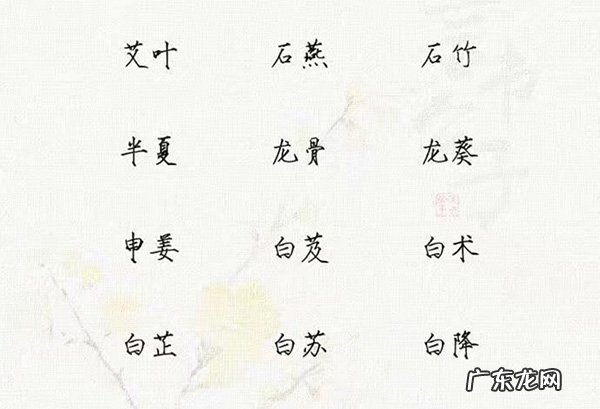 艾叶 石燕 石竹
半夏 龙骨 龙葵
申姜 白芨 白术
白芷 白苏 白降
广东龙网